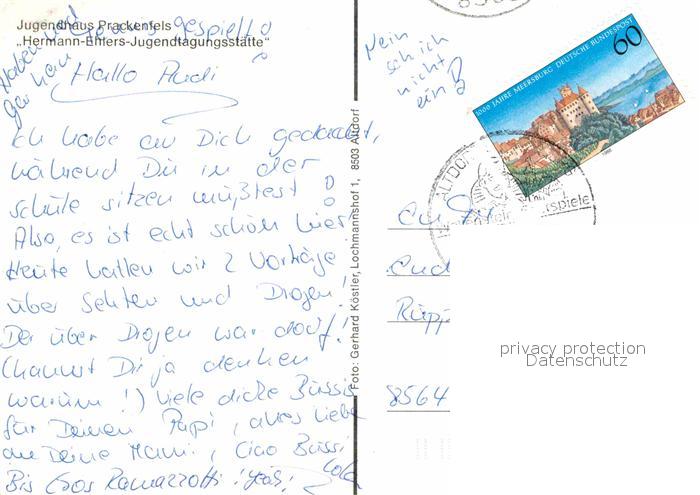 Jugendhaus Prackenfels
„Hermann-Ehlers-Jugendtagungsstätte"
Haben
gespielt
Hallo Rudi
Ich habe an Dich gedacht,
während Du in der
schule sitzen müßtest!
Also, es ist echt schön hier!
Heute hatten wir 2 Vorträge
über Sekten und Drogen!
Der über Drogen war doof!
(kannst Dir ja denken
warum!) viele dicke Bussis
für Deinen Papi, alles liebe
an Deine Mami, Ciao Bussi
Bis Ramazzotti!
Foto: Gerhard Köstler, Lochmannshof 1, 8503 Altdorf
Nein
seh ich
nicht
ein
1000 JAHRE MEERSBURG DEUTSCHE BUNDESPOST
60
1988
ALTDORF
spiele
Rüpp
8564
privacy protection
Datenschutz